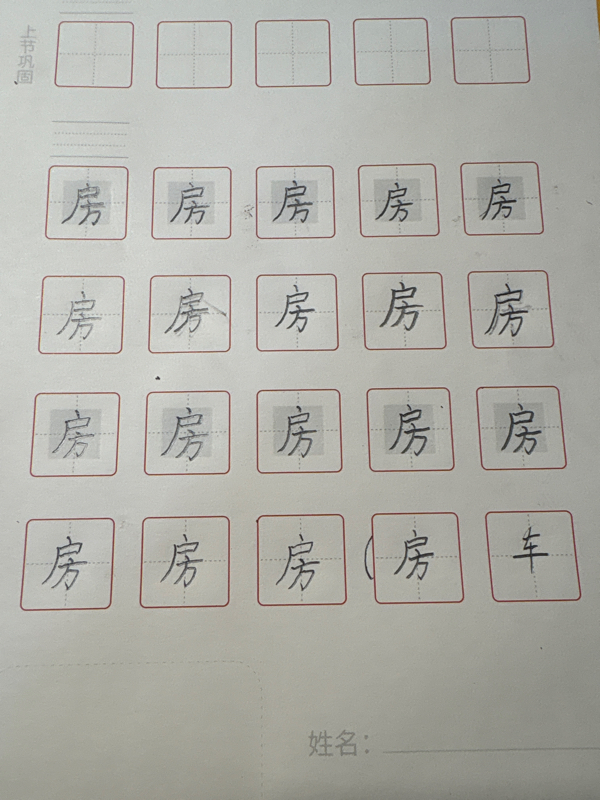 上节巩固
房 房 房 房 房
房 房 房 房 房
房 房 房 房 房
房 房 房 (房 车
姓名: